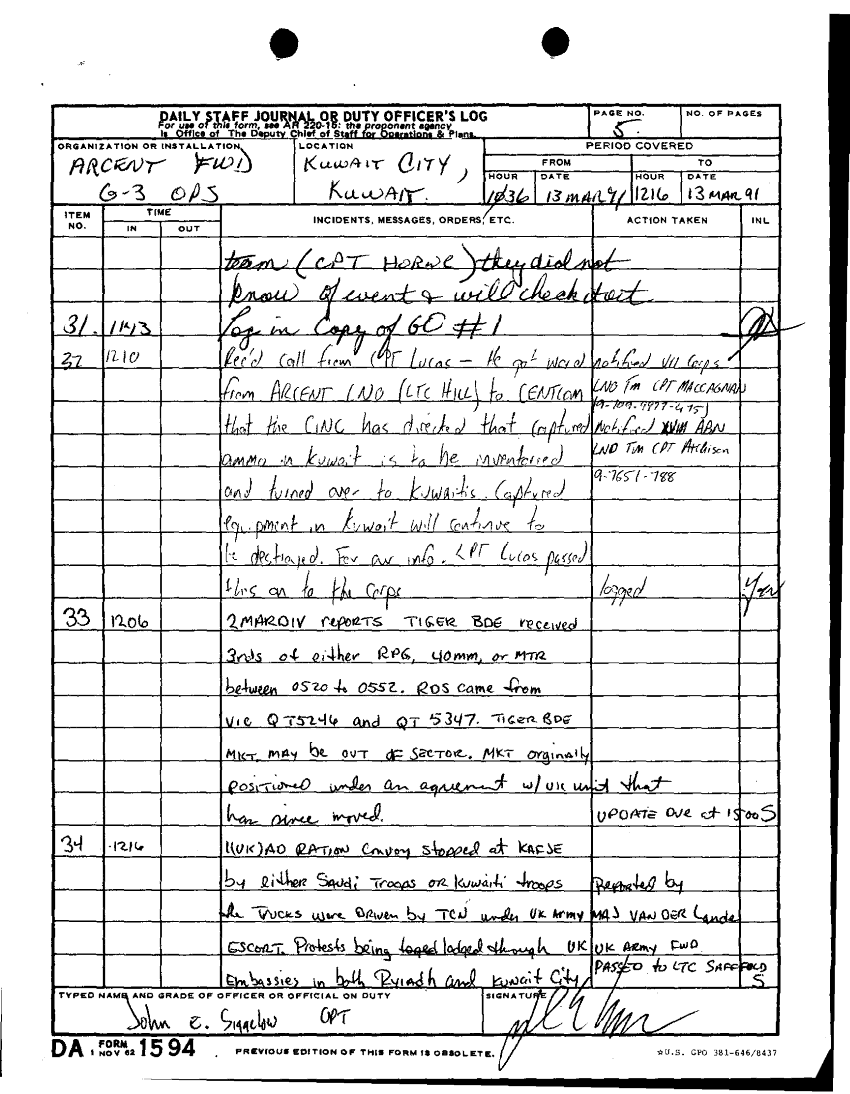 DAILY STAFF JOURNAL OR DUTY OFFICER'S LOG
For use of this form, see AR 220-15: the proponent agency
is Office of The Deputy Chief of Staff for Operations & Plans.
PAGE NO.
5
NO. OF PAGES
ORGANIZATION OR INSTALLATION
ARCENT FWD
G-3 OPS
LOCATION
KUWAIT CITY,
KUWAIT.
PERIOD COVERED
FROM
TO
HOUR
DATE
HOUR
DATE
1036
13 MAR 91
1216
13 MAR 91
ITEM NO.
TIME
IN
OUT
INCIDENTS, MESSAGES, ORDERS, ETC.
ACTION TAKEN
INL
team (CPT HORNE) they did not
know of event & will check it out.
31. 1143 Log in Copy of GO #1
32 1210 Rec'd call from CPT Lucas - He got word
from ARCENT LNO (LTC HILL) to CENTCOM
that the CINC has directed that captured
ammo in Kuwait is to be inventoried
and turned over to Kuwaitis. Captured
equipment in Kuwait will continue to
be destroyed. For our info. CPT Lucas passed
this on to the Corps
notified VII Corps
LNO Tm CPT MACCAGNAN
Notified XVIII ABN
LNO Tm CPT Atchison
9-7651-788
logged
33 1206 2MARDIV reports TIGER BDE received
3rds of either RPG, 40mm, or MTR
between 0520 to 0552. RDS came from
VIC QT5246 and QT 5347. TIGER BDE
MKT. MAY be OUT OF SECTOR. MKT orginally
POSITIONED under an agreement w/ UK unit that
has since moved.
UPDATE DUE at 1500S
34 1216 1(UK)AD RATION Convoy stopped at KAFSE
by either Saudi Troops OR Kuwaiti troops
the TRUCKS were DRIVEN by TCN under UK Army
ESCORT. Protests being loged lodged though UK
Embassies in both Ryiadh and Kuwait City
Reported by
MAJ VAN DER Lande
UK ARMY FWD
PASSED to LTC SAFFOLD
S
TYPED NAME AND GRADE OF OFFICER OR OFFICIAL ON DUTY
John E. Siggelow CPT
SIGNATURE
DA FORM 1 NOV 62 1594
PREVIOUS EDITION OF THIS FORM IS OBSOLETE.
☆U.S. GPO 381-646/8437